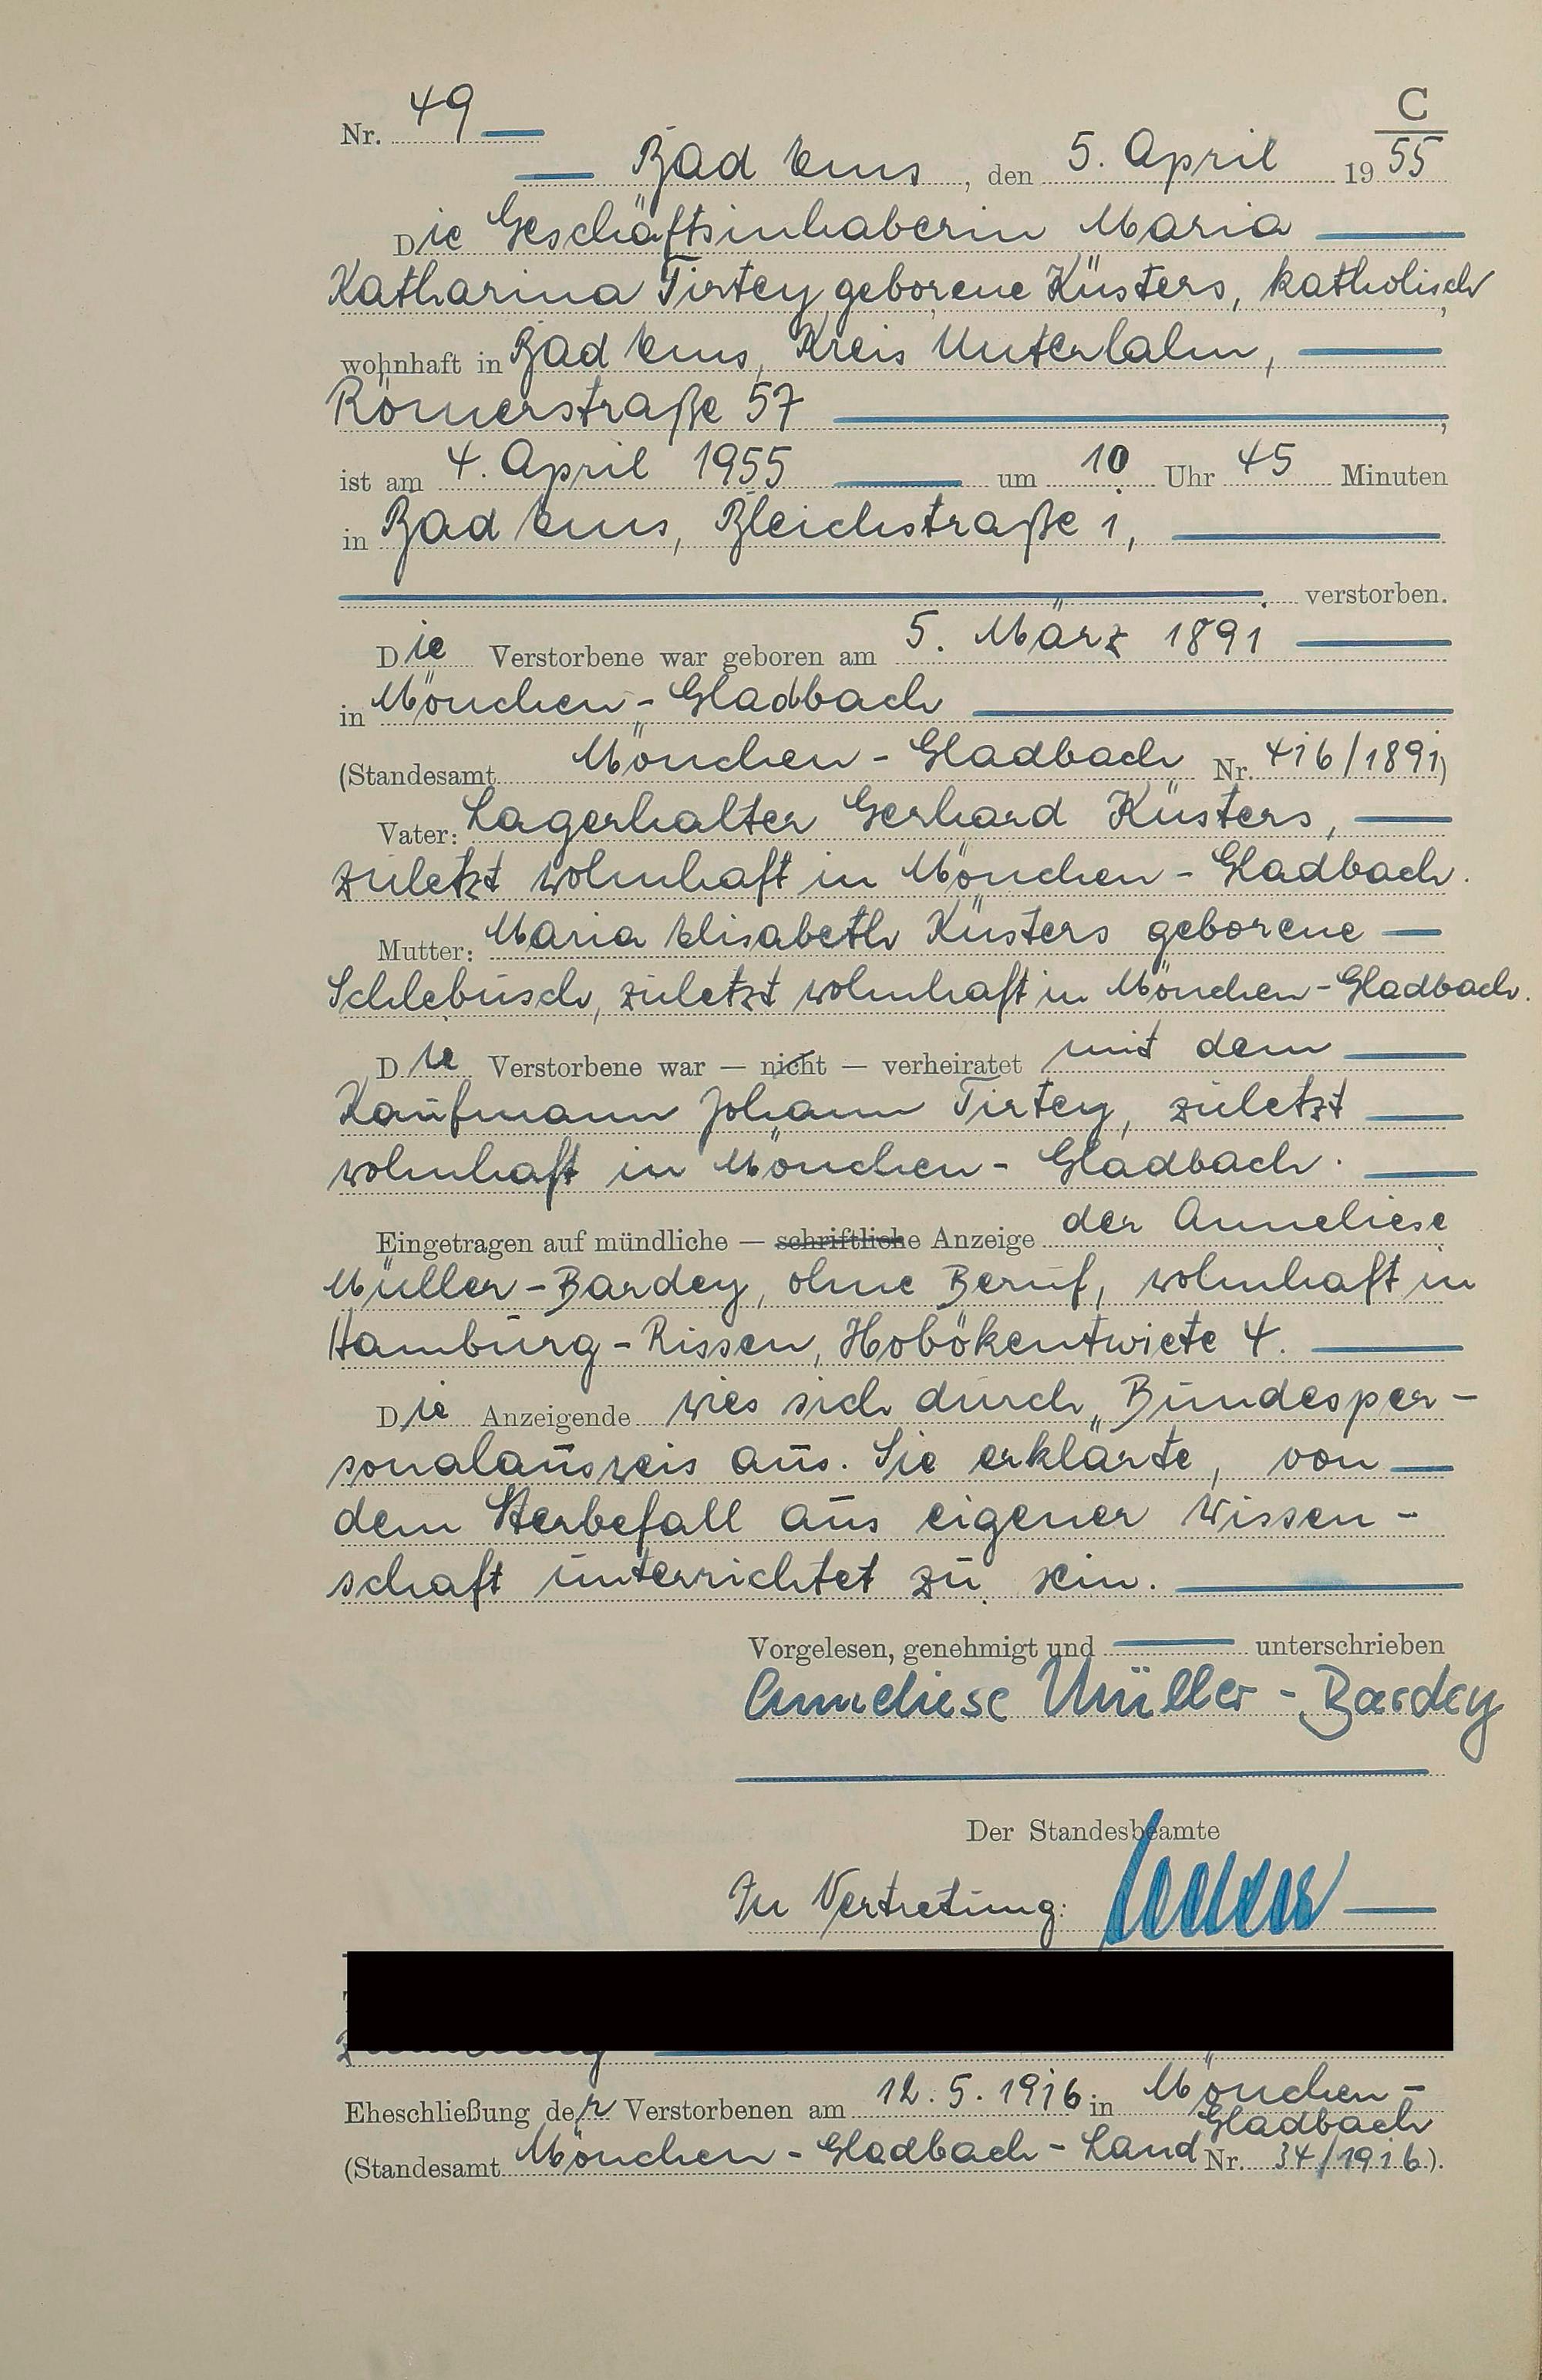 Nr. 49
C
Bad Ems, den 5. April 1955
Die Geschäftsinhaberin Maria
Katharina Tirtey geborene Küsters, katholisch,
wohnhaft in Bad Ems, Kreis Unterlahn,
Römerstraße 57,
ist am 4. April 1955 um 10 Uhr 45 Minuten
in Bad Ems, Bleichstraße 1,
verstorben.
Die Verstorbene war geboren am 5. März 1891
in Mönchen-Gladbach
(Standesamt Mönchen-Gladbach Nr. 416/1891)
Vater: Lagerhalter Gerhard Küsters,
zuletzt wohnhaft in Mönchen-Gladbach.
Mutter: Maria Elisabeth Küsters geborene
Schlebusch, zuletzt wohnhaft in Mönchen-Gladbach.
Die Verstorbene war — nicht — verheiratet mit dem
Kaufmann Johann Tirtey, zuletzt
wohnhaft in Mönchen-Gladbach.
Eingetragen auf mündliche — schriftliche Anzeige der Anneliese
Müller-Bardey, ohne Beruf, wohnhaft in
Hamburg-Rissen, Hobökentwiete 4.
Die Anzeigende wies sich durch Bundesper-
sonalausweis aus. Sie erklärte, von
dem Sterbefall aus eigener Wissen-
schaft unterrichtet zu sein.
Vorgelesen, genehmigt und unterschrieben
Anneliese Müller-Bardey
Der Standesbeamte
In Vertretung:
Eheschließung der Verstorbenen am 12.5.1916 in Mönchen-
Gladbach
(Standesamt Mönchen-Gladbach-Land Nr. 34/1916).